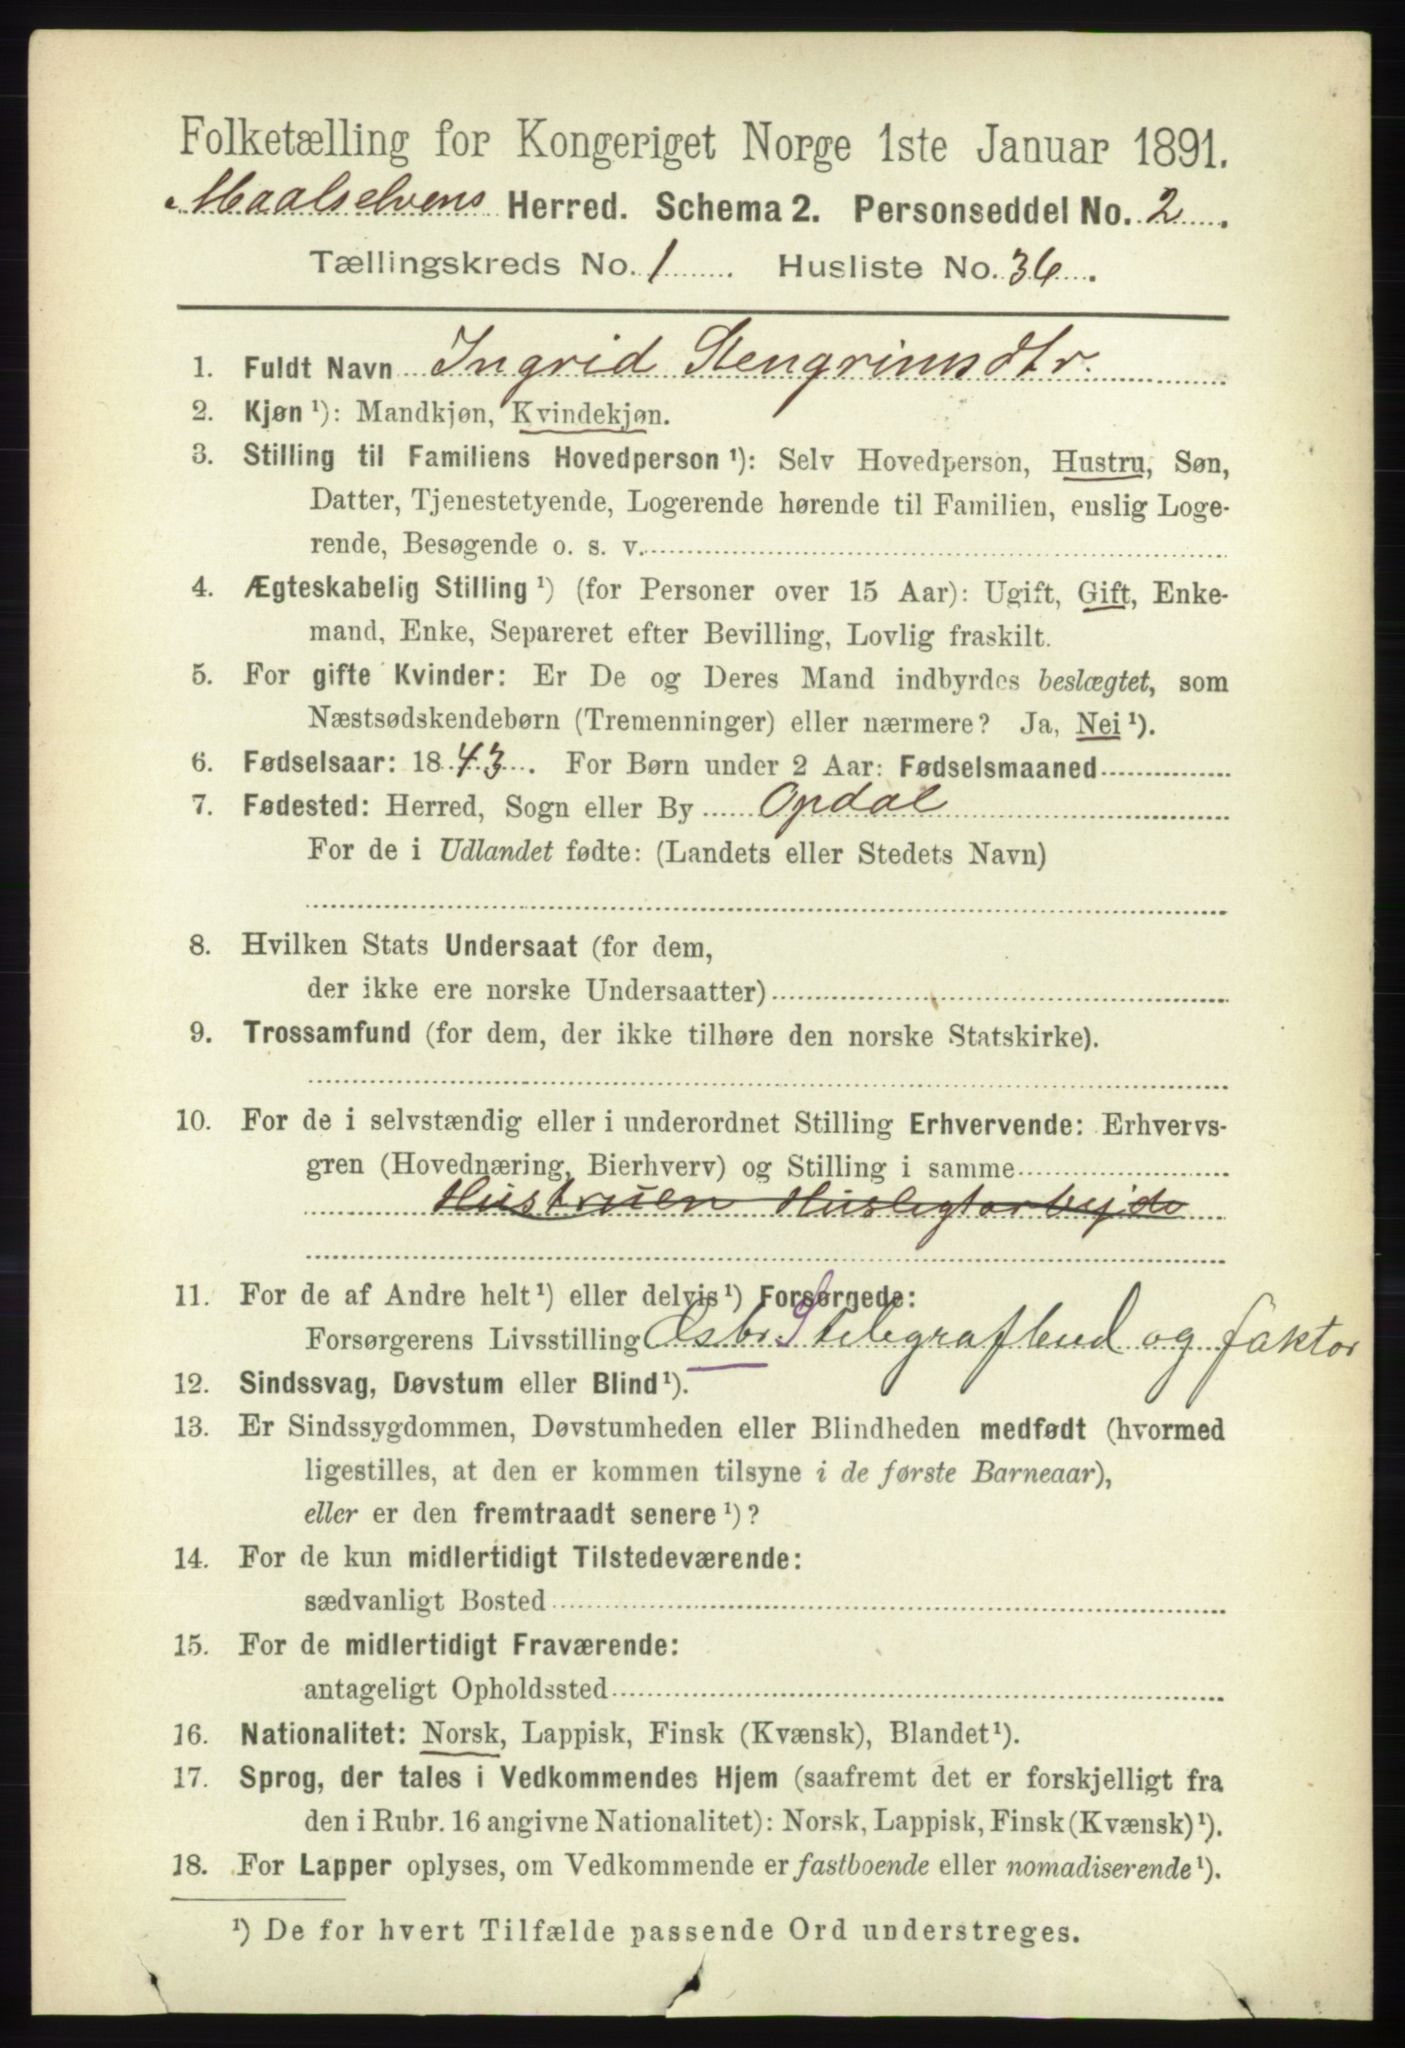 Folketælling for Kongeriget Norge 1ste Januar 1891.
Maalselvens Herred. Schema 2. Personseddel No. 2.
Tællingskreds No. 1 Husliste No. 36.
1. Fuldt Navn Ingrid Stengrimsdtr.
2. Kjøn ¹): Mandkjøn, Kvindekjøn.
3. Stilling til Familiens Hovedperson ¹): Selv Hovedperson, Hustru, Søn,
Datter, Tjenestetyende, Logerende hørende til Familien, enslig Loge-
rende, Besøgende o. s. v.
4. Ægteskabelig Stilling ¹) (for Personer over 15 Aar): Ugift, Gift, Enke-
mand, Enke, Separeret efter Bevilling, Lovlig fraskilt.
5. For gifte Kvinder: Er De og Deres Mand indbyrdes beslægtet, som
Næstsødskendebørn (Tremenninger) eller nærmere? Ja, Nei ¹).
6. Fødselsaar: 1843. For Børn under 2 Aar: Fødselsmaaned
7. Fødested: Herred, Sogn eller By Opdal
For de i Udlandet fødte: (Landets eller Stedets Navn)
8. Hvilken Stats Undersaat (for dem,
der ikke ere norske Undersaatter)
9. Trossamfund (for dem, der ikke tilhøre den norske Statskirke).
10. For de i selvstændig eller i underordnet Stilling Erhvervende: Erhvervs-
gren (Hovednæring, Bierhverv) og Stilling i samme
Hustruen Husligtarbejde
11. For de af Andre helt ¹) eller delvis ¹) Forsørgede:
Forsørgerens Livsstilling telegrafbud og faktor
12. Sindssvag, Døvstum eller Blind ¹).
13. Er Sindssygdommen, Døvstumheden eller Blindheden medfødt (hvormed
ligestilles, at den er kommen tilsyne i de første Barneaar),
eller er den fremtraadt senere ¹)?
14. For de kun midlertidigt Tilstedeværende:
sædvanligt Bosted
15. For de midlertidigt Fraværende:
antageligt Opholdssted
16. Nationalitet: Norsk, Lappisk, Finsk (Kvænsk), Blandet ¹).
17. Sprog, der tales i Vedkommendes Hjem (saafremt det er forskjelligt fra
den i Rubr. 16 angivne Nationalitet): Norsk, Lappisk, Finsk (Kvænsk) ¹).
18. For Lapper oplyses, om Vedkommende er fastboende eller nomadiserende ¹).
¹) De for hvert Tilfælde passende Ord understreges.